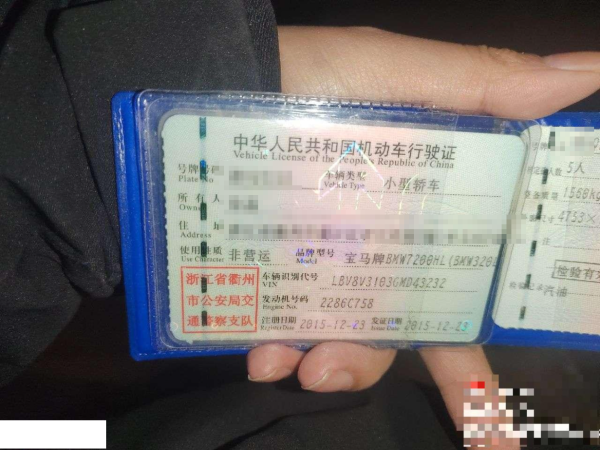 中华人民共和国机动车行驶证
Vehicle License of the People's Republic of China
号牌号码
Plate No.
车辆类型
Vehicle Type
小型轿车
所有人
Owner
住址
Address
使用性质
Use Character
非营运
品牌型号
Model
宝马牌BMW7200HL(BMW320
浙江省衢州
市公安局交
通警察支队
车辆识别代号
VIN
LBV8V3103GMD43232
发动机号码
Engine No.
2286C758
注册日期
Register Date
2015-12-23
发证日期
Issue Date
2015-12-23
人数
5人
1568kg
4753×
检验有
汽油